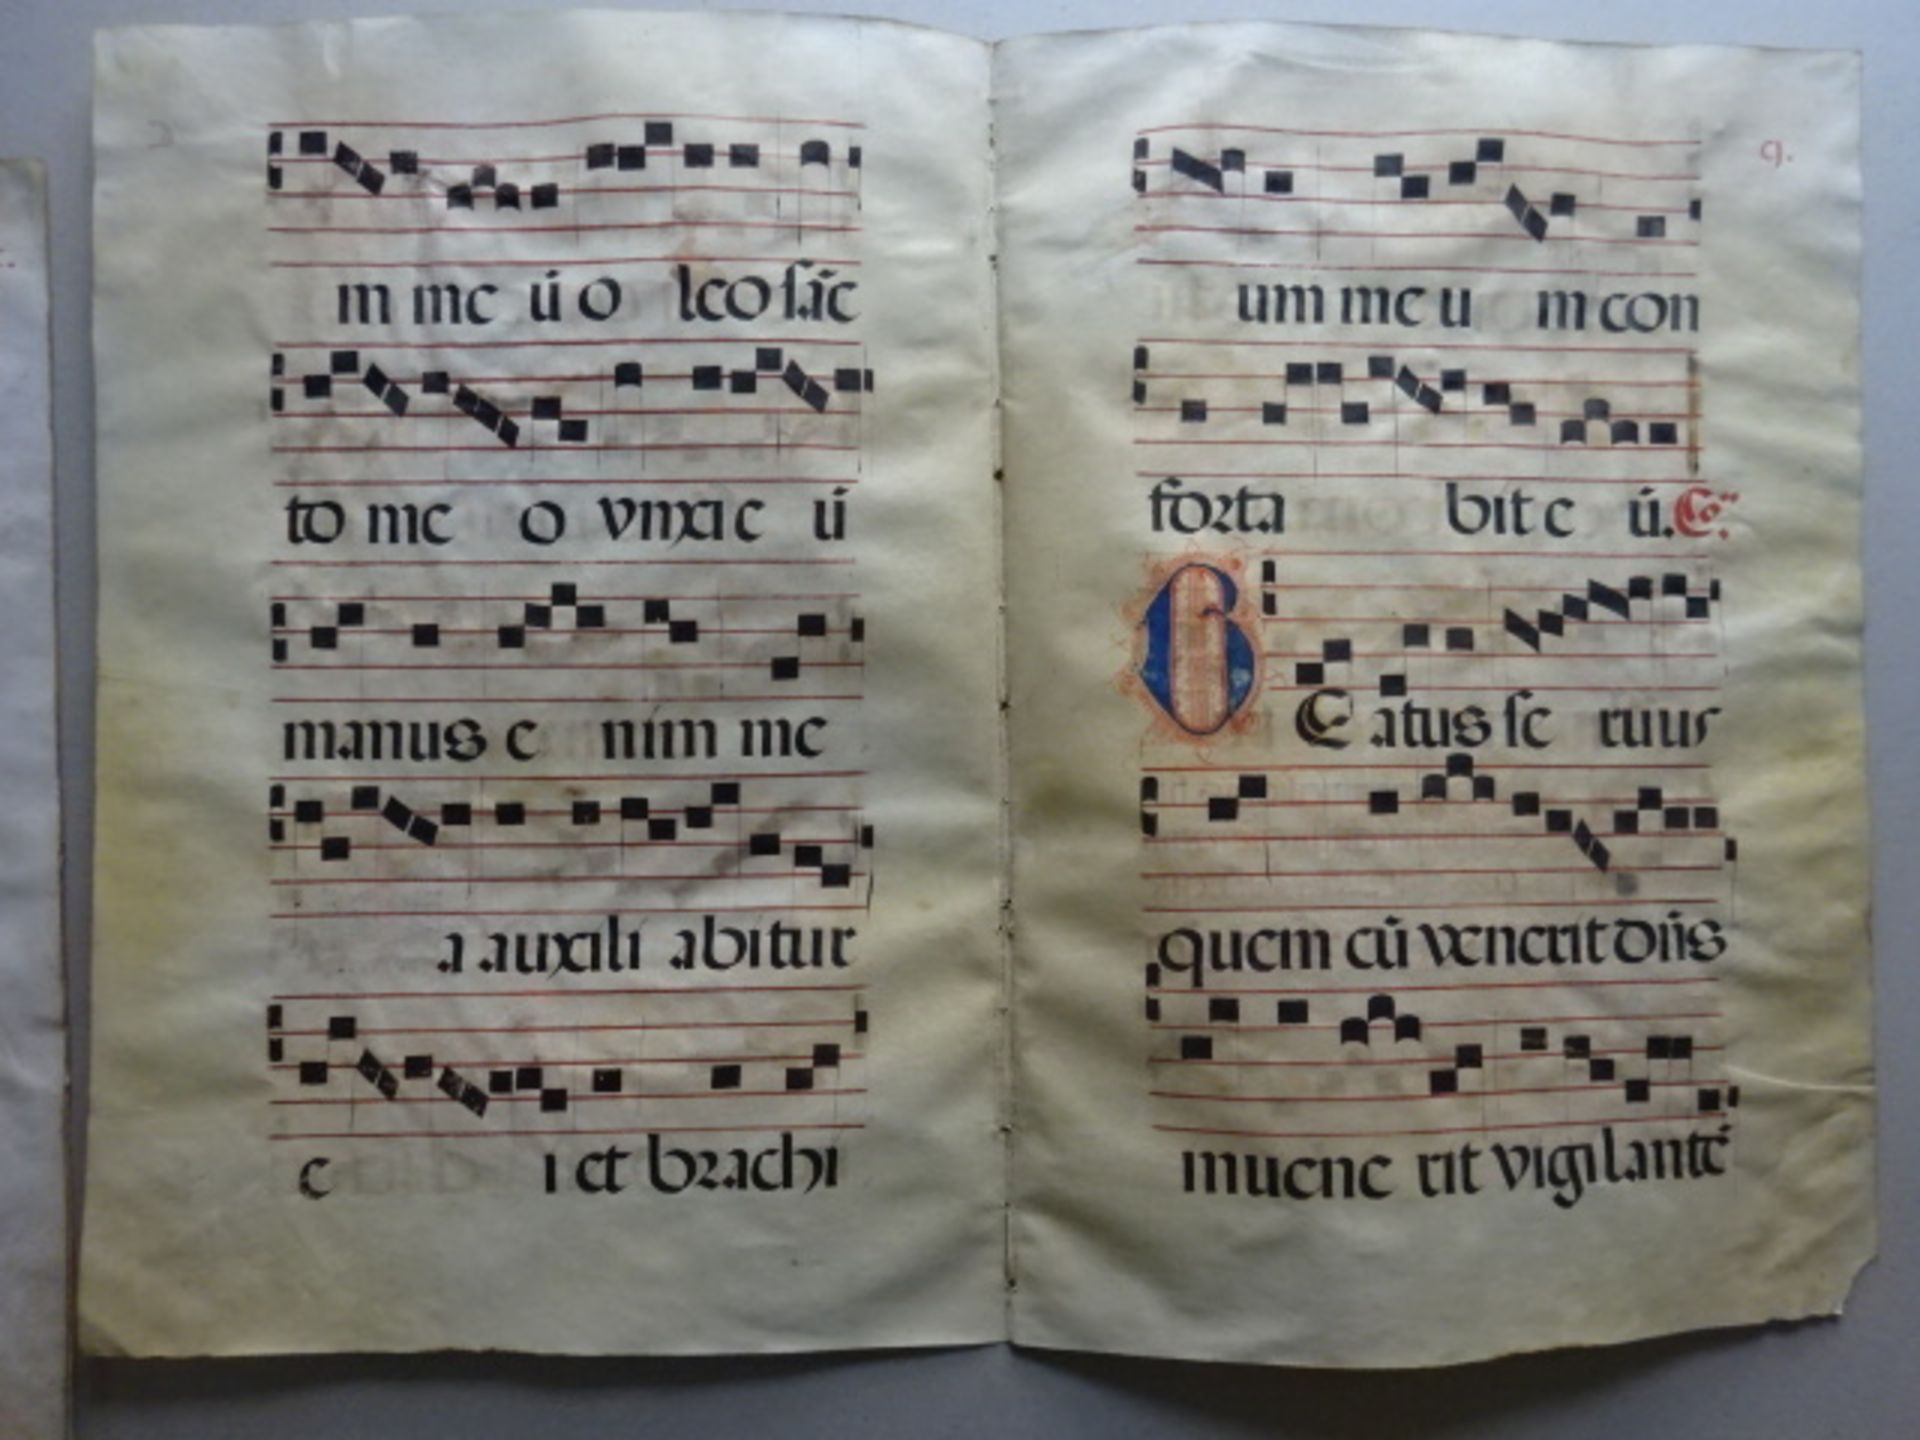 m me ū o leo sāc
to me o vnxi e ū
manus e nim me
a auxili abitur
e i et brachi
q.
um me u m con
forta bit e ū. Co.
BEatus se ruus
quem cū venerit dn̄s
inuene rit vigilantē